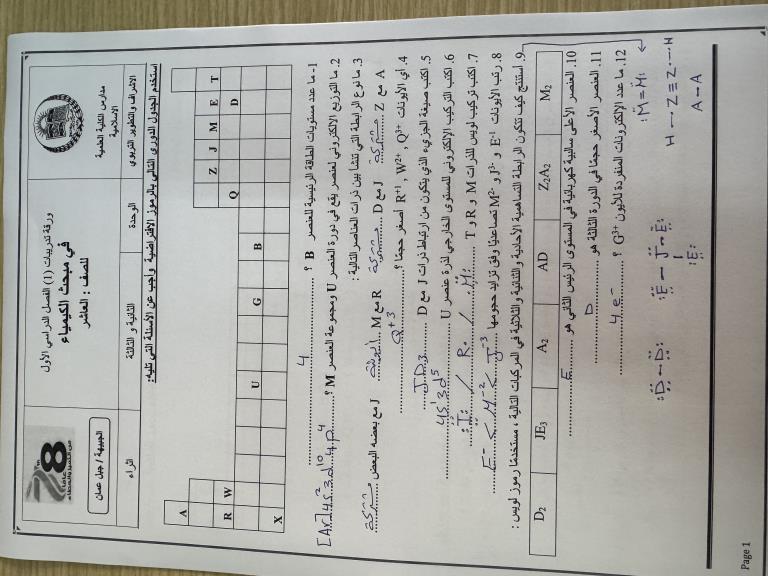 مدارس الكلية العلمية الاسلامية
الاشراف والتطوير التربوي
ورقة تدريبات (1) الفصل الدراسي الأول
في مبحث الكيمياء
للصف : العاشر
الجبيهة / جبل عمان
الوحدة
الثانية و الثالثة
اثراء
استخدم الجدول الدوري التالي بالرموز الافتراضية واجب عن الأسئلة التي تليه:
A
Z J M E T
R W Q D
U G B
X
1- ما عدد مستويات الطاقة الرئيسية للعنصر B ؟ 4
2. ما التوزيع الالكتروني لعنصر يقع في دورة العنصر U ومجموعة العنصر M ؟ [Ar] 4s² 3d¹⁰ 4p⁴
3. ما نوع الرابطة التي تنشأ بين ذرات العناصر التالية :
A مع Z مشتركة D مع J مشتركة M مع R أيونية J مع بعضه البعض مشتركة
4. أي الأيونات R⁺¹ , W²⁺ , Q³⁺ أصغر حجما؟ Q⁺³
5. اكتب صيغة الجزيء الذي يتكون من ارتباط ذرات J مع D JD₃
6. اكتب التركيب الإلكتروني للمستوى الخارجي لذرة عنصر U 4s¹ 3d⁵
7. اكتب تركيب لويس للذرات M و R و T :T: / R. / :M:
8. رتب الأيونات E⁻¹ و J³⁻ و M²⁻ تصاعديًا وفق تزايد حجومها E⁻ < M⁻² < J⁻³
9. استنتج كيف تتكون الرابطة التساهمية الأحادية والثنائية والثلاثية في المركبات التالية ، مستخدمًا رموز لويس :
D₂ JE₃ A₂ AD Z₂A₂ M₂
10. العنصر الأعلى سالبية كهربائية في المستوى الرئيس الثاني هو E
11. العنصر الأصغر حجمًا في الدورة الثالثة هو D
12. ما عدد الإلكترونات المنفردة للأيون G³⁺ ؟ 4e⁻
:M=M:
:D-D: :E-J-E: H-Z≡Z-H
:E: A-A
Page 1